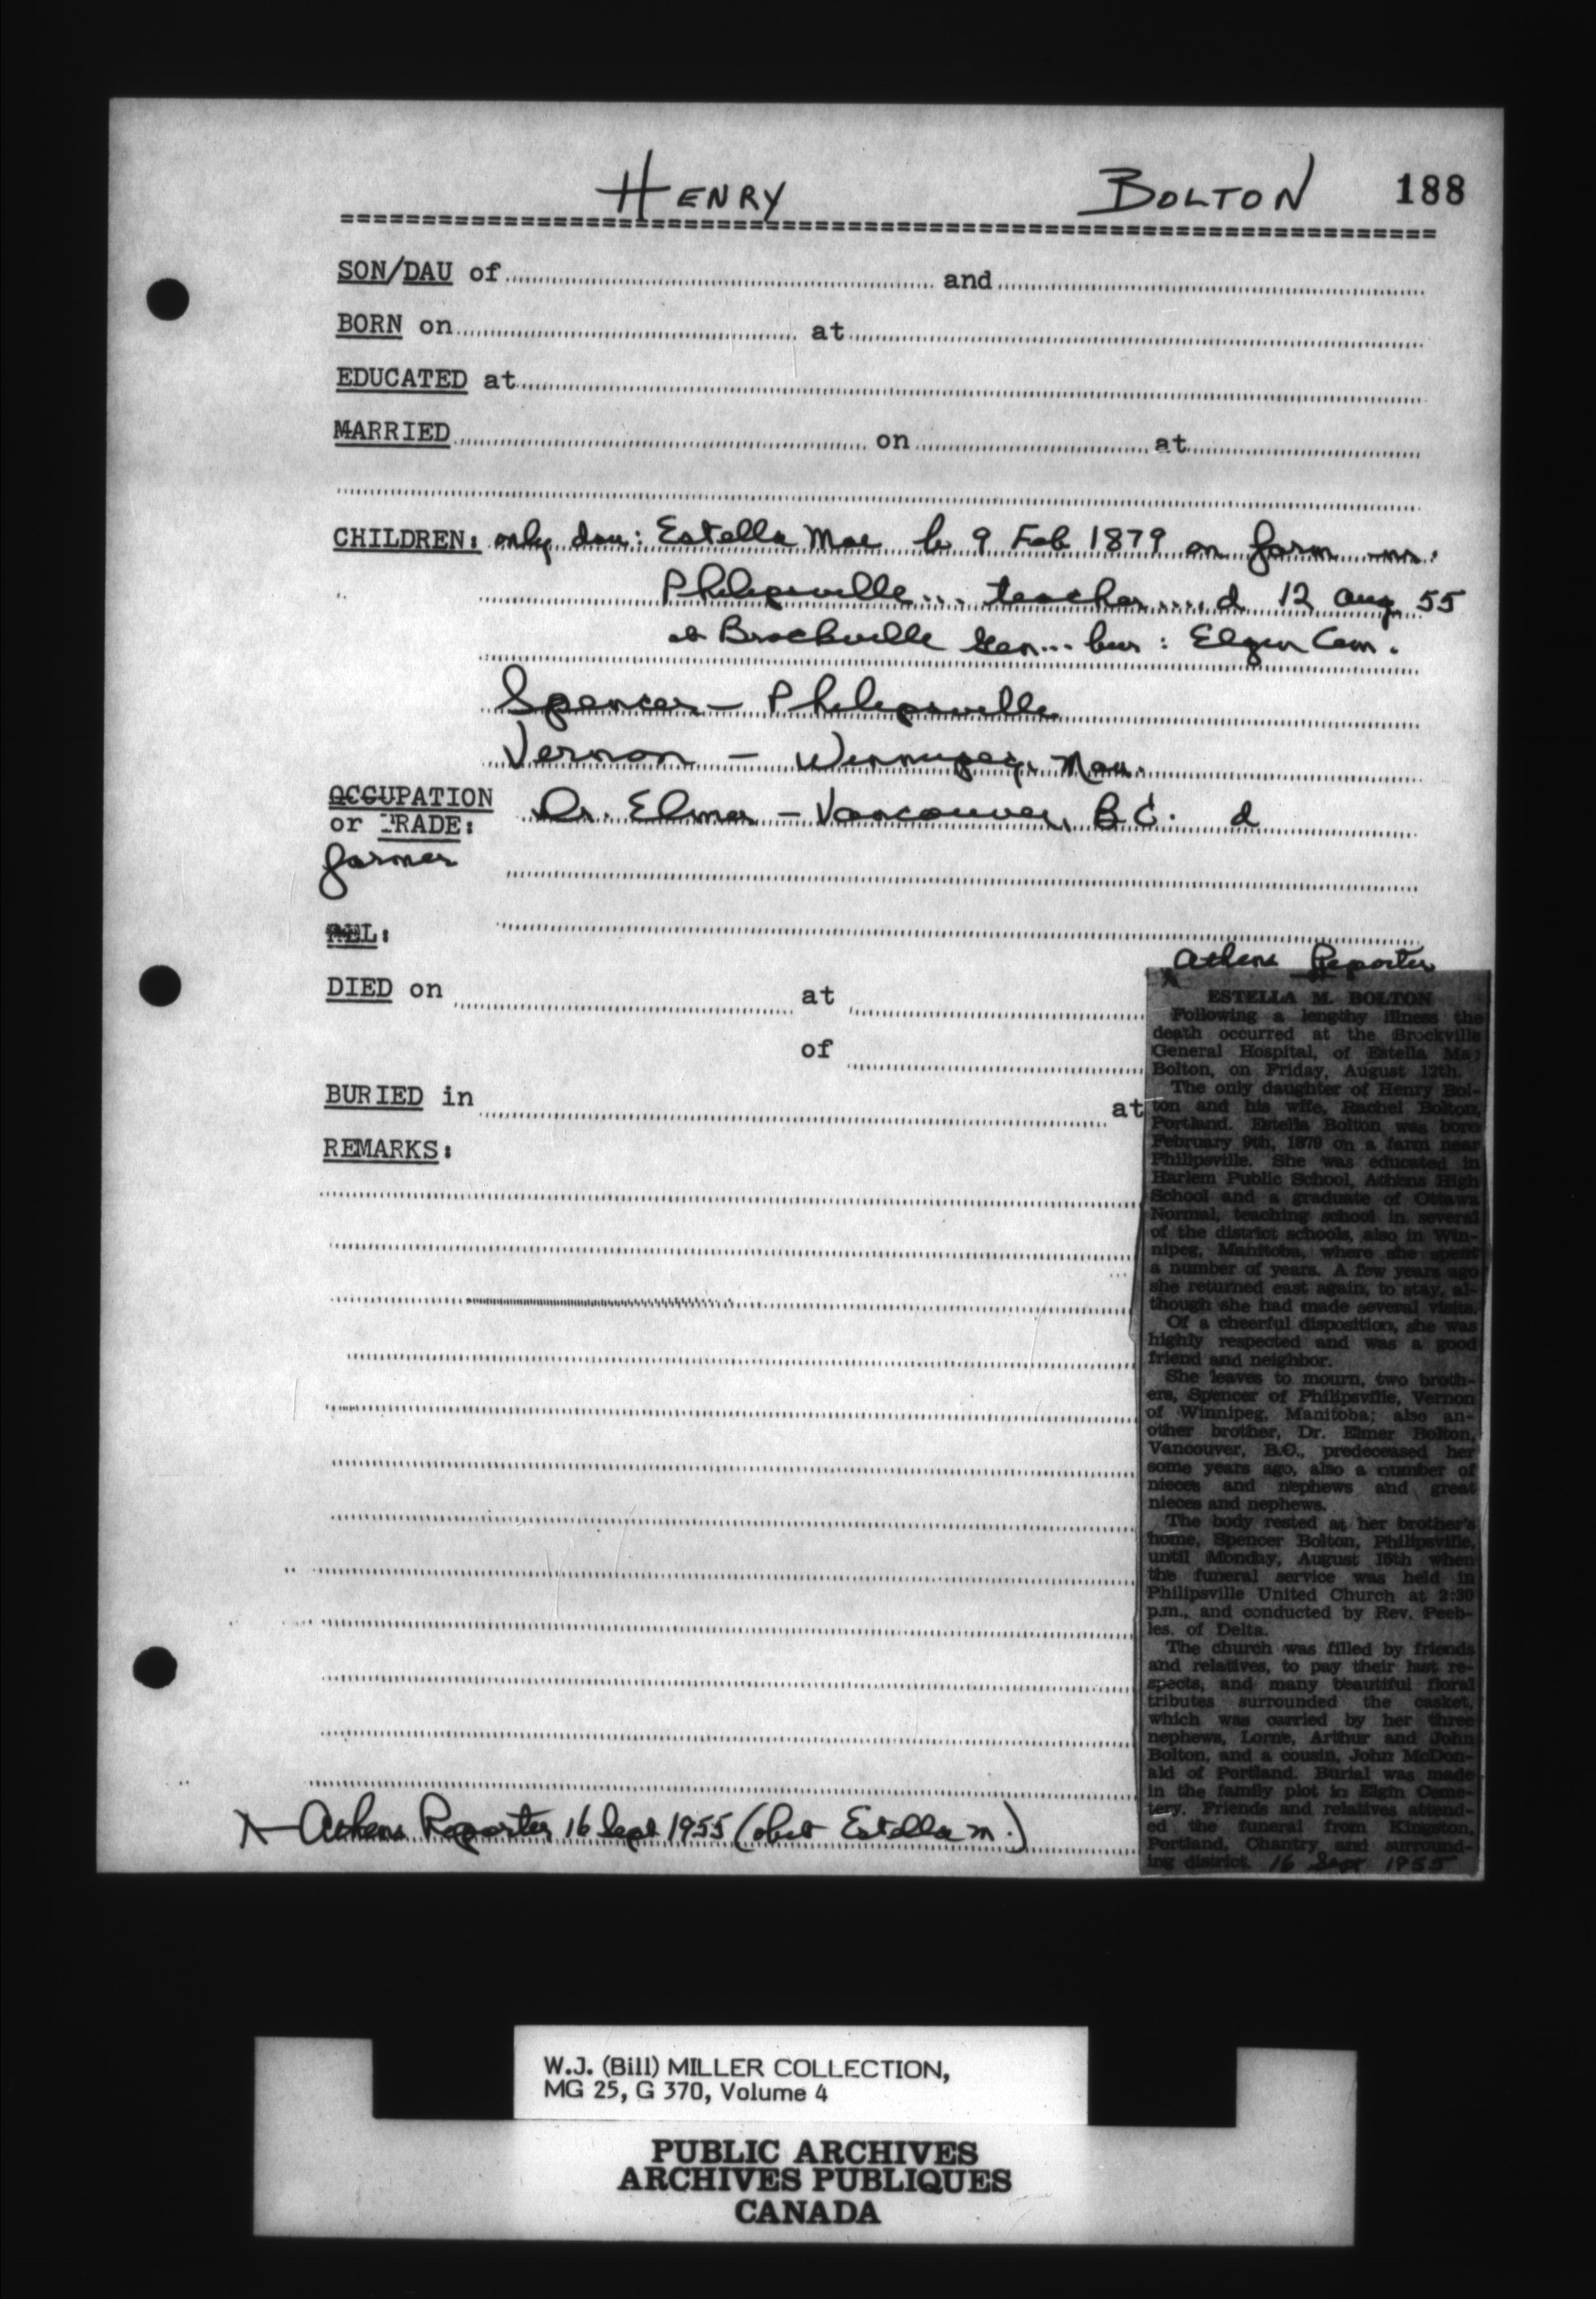 HENRY BOLTON 188
SON/DAU of and
BORN on at
EDUCATED at
MARRIED on at
CHILDREN: only dau: Estella Mae b 9 Feb 1879 on farm nr.
Philipsville... teacher.... d 12 Aug 55
at Brockville Gen... bur: Elgin Cem.
Spencer - Philipsville
Vernon - Winnipeg, Man.
OCCUPATION
or TRADE:
Dr. Elmer - Vancouver, B.C. d
farmer
REL:
DIED on at
of
BURIED in at
REMARKS:
X Athens Reporter 16 Sept 1955 (obit Estella M.)
Athens Reporter
X
ESTELLA M. BOLTON
Following a lengthy illness the
death occurred at the Brockville
General Hospital, of Estella Mae
Bolton, on Friday, August 12th.
The only daughter of Henry Bol-
ton and his wife, Rachel Bolton,
Portland. Estella Bolton was born
February 9th, 1879 on a farm near
Philipsville. She was educated in
Harlem Public School, Athens High
School and a graduate of Ottawa
Normal, teaching school in several
of the district schools, also in Win-
nipeg, Manitoba, where she spent
a number of years. A few years ago
she returned east again, to stay, al-
though she had made several visits.
Of a cheerful disposition, she was
highly respected and was a good
friend and neighbor.
She leaves to mourn, two broth-
ers, Spencer of Philipsville, Vernon
of Winnipeg, Manitoba; also an-
other brother, Dr. Elmer Bolton,
Vancouver, B.C., predeceased her
some years ago, also a number of
nieces and nephews and great
nieces and nephews.
The body rested at her brother's
home, Spencer Bolton, Philipsville,
until Monday, August 15th when
the funeral service was held in
Philipsville United Church at 2:30
p.m., and conducted by Rev. Peeb-
les, of Delta.
The church was filled by friends
and relatives, to pay their last re-
spects, and many beautiful floral
tributes surrounded the casket,
which was carried by her three
nephews, Lorne, Arthur and John
Bolton, and a cousin, John McDon-
ald of Portland. Burial was made
in the family plot in Elgin Ceme-
tery. Friends and relatives attend-
ed the funeral from Kingston,
Portland, Chantry and surround-
ing district. 16 Sept 1955
W.J. (Bill) MILLER COLLECTION,
MG 25, G 370, Volume 4
PUBLIC ARCHIVES
ARCHIVES PUBLIQUES
CANADA